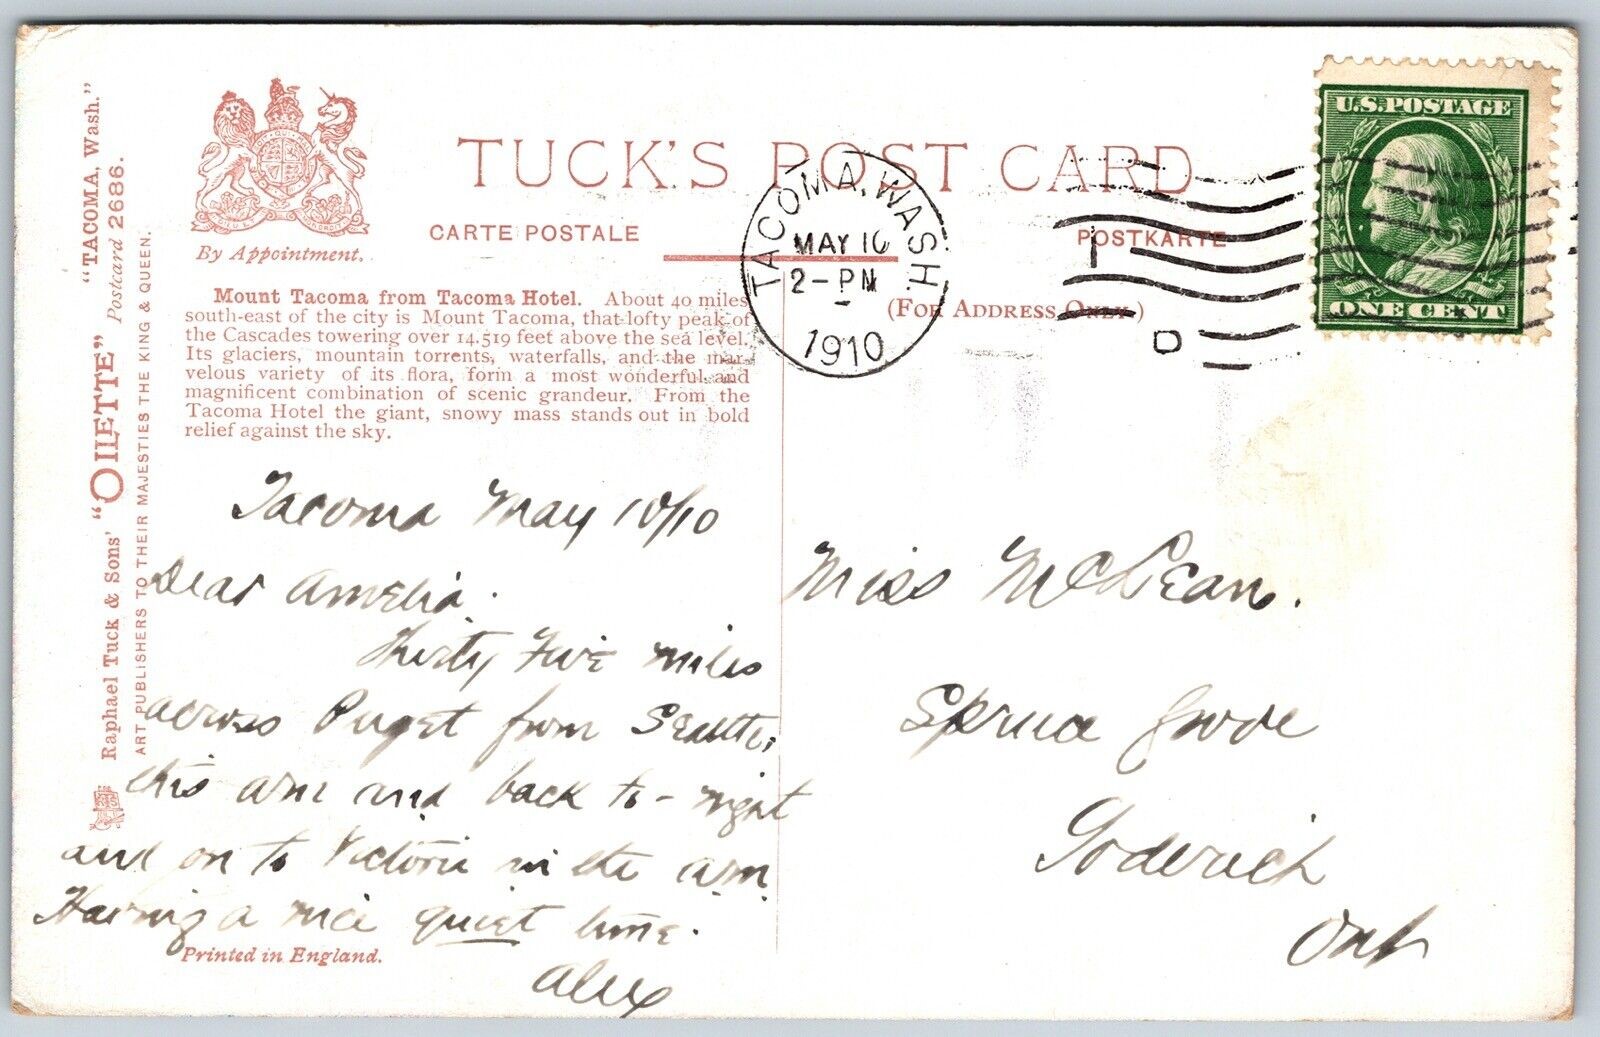 "TACOMA, Wash."
Raphael Tuck & Sons' "OILETTE" Postcard 2686.
ART PUBLISHERS TO THEIR MAJESTIES THE KING & QUEEN.
By Appointment.
TUCK'S POST CARD
CARTE POSTALE
POSTKARTE
(FOR ADDRESS ONLY.)
TACOMA, WASH.
MAY 10
2-PM
1910
U.S.POSTAGE
ONE CENT
Mount Tacoma from Tacoma Hotel. About 40 miles
south-east of the city is Mount Tacoma, that lofty peak of
the Cascades towering over 14,519 feet above the sea level.
Its glaciers, mountain torrents, waterfalls, and the mar-
velous variety of its flora, form a most wonderful and
magnificent combination of scenic grandeur. From the
Tacoma Hotel the giant, snowy mass stands out in bold
relief against the sky.
Tacoma May 10/10
Dear Amelia.
Thirty Five miles
across Puget from Seattle,
this am and back to-night
and on to Victoria in the am
Having a nice quiet time.
Alex
Printed in England.
Miss McLean.
Spruce Grove
Goderich
Ont